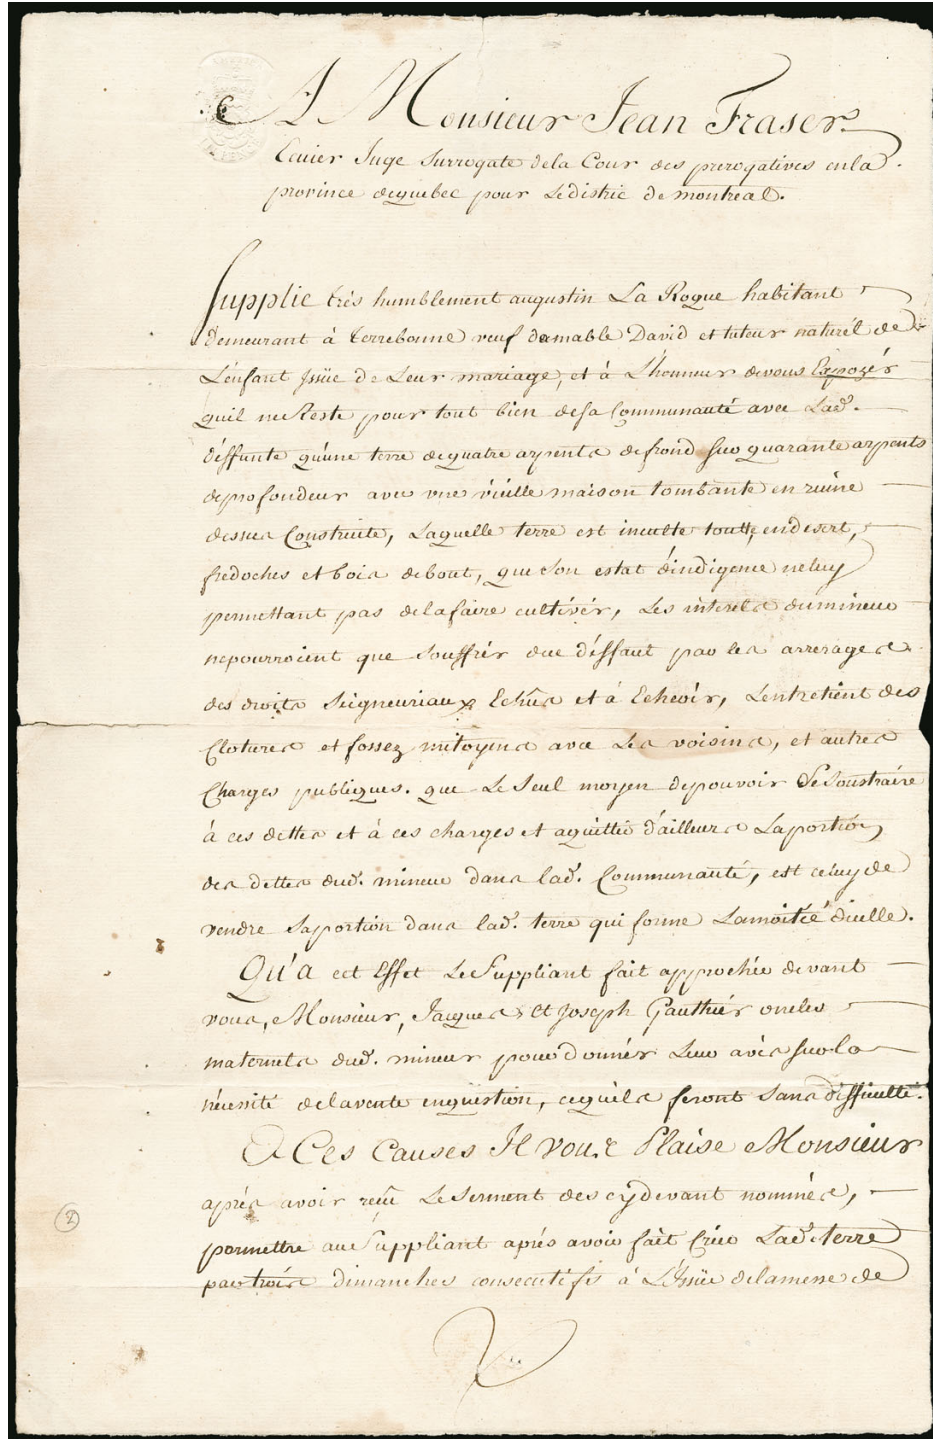 A Monsieur Jean Fraser.
Ecuier Juge Surrogate dela Cour des prerogatives enla
province dequebec pour Ledistric de montreal.
Supplie trés humblement augustin La Roque habitant
demeurant à terrebonne veuf damable David et tuteur naturél de
L'enfant Jssüe de Leur mariage, et à L'honneur devous Expozér
quil ne Reste pour tout bien desa Communauté avec Lad.
déffunte qu'une terre dequatre arpents defrond sur quarante arpents
deprofondeur avec une vieille maison tombante en ruine
dessus Construite, Laquelle terre est inculte toutte endesert,
fredoches et bois debout, que son estat d'indigence neluy
permettant pas delafaire cultivér, Les intérets dumineur
nepourroient que souffrir due déffaut par les arrerages
des droits Seigneuriaux Echûs et à Echeoir, L'entretient des
Clotures et fossez mitoyens avec Les voisins, et autres
Charges publiques. que Le Seul moyen depouvoir Se Soustraire
à ces dettes et à ces charges et aquitter d'ailleurs Laportion
des dettes dud. mineur dans lad. Communauté, est céluy de
vendre Saportion dans lad. terre qui forme Lamoitié dicelle.
Qu'a cet Effet Le Suppliant fait approcher devant
vous, Monsieur, Jacques et Joseph Gauthiér oncles
maternels dud. mineur pour donnér Leur avis sur la
nécessité delavente enquestion, cequils feront sans difficulté.
A Ces Causes Il vous Plaise Monsieur
aprés avoir reçu Le Serment des cydevant nommés,
permettre au Suppliant aprés avoir fait Criér Lad. terre
par trois dimanches consecutifs à L'Jssüe delamesse de
2